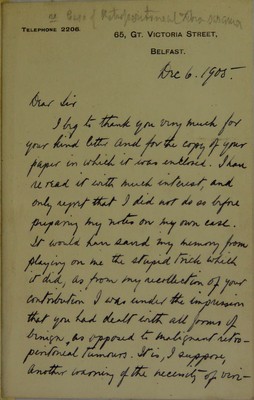 re Case of Retroperitoneal Fibro
TELEPHONE 2206.
65, GT. VICTORIA STREET,
BELFAST.
Dec 6. 1905.
Dear Sir
I beg to thank you very much for
your kind letter and for the copy of your
paper in which it was enclosed. I have
re read it with much interest, and
only regret that I did not do so before
preparing my notes on my own case.
It would have saved my memory from
playing on me the stupid trick which
it did, as, from my recollection of your
contribution I was under the impression
that you had dealt with all forms of
benign, as opposed to malignant retro-
peritoneal tumours. It is, I suppose,
another warning of the necessity of veri-